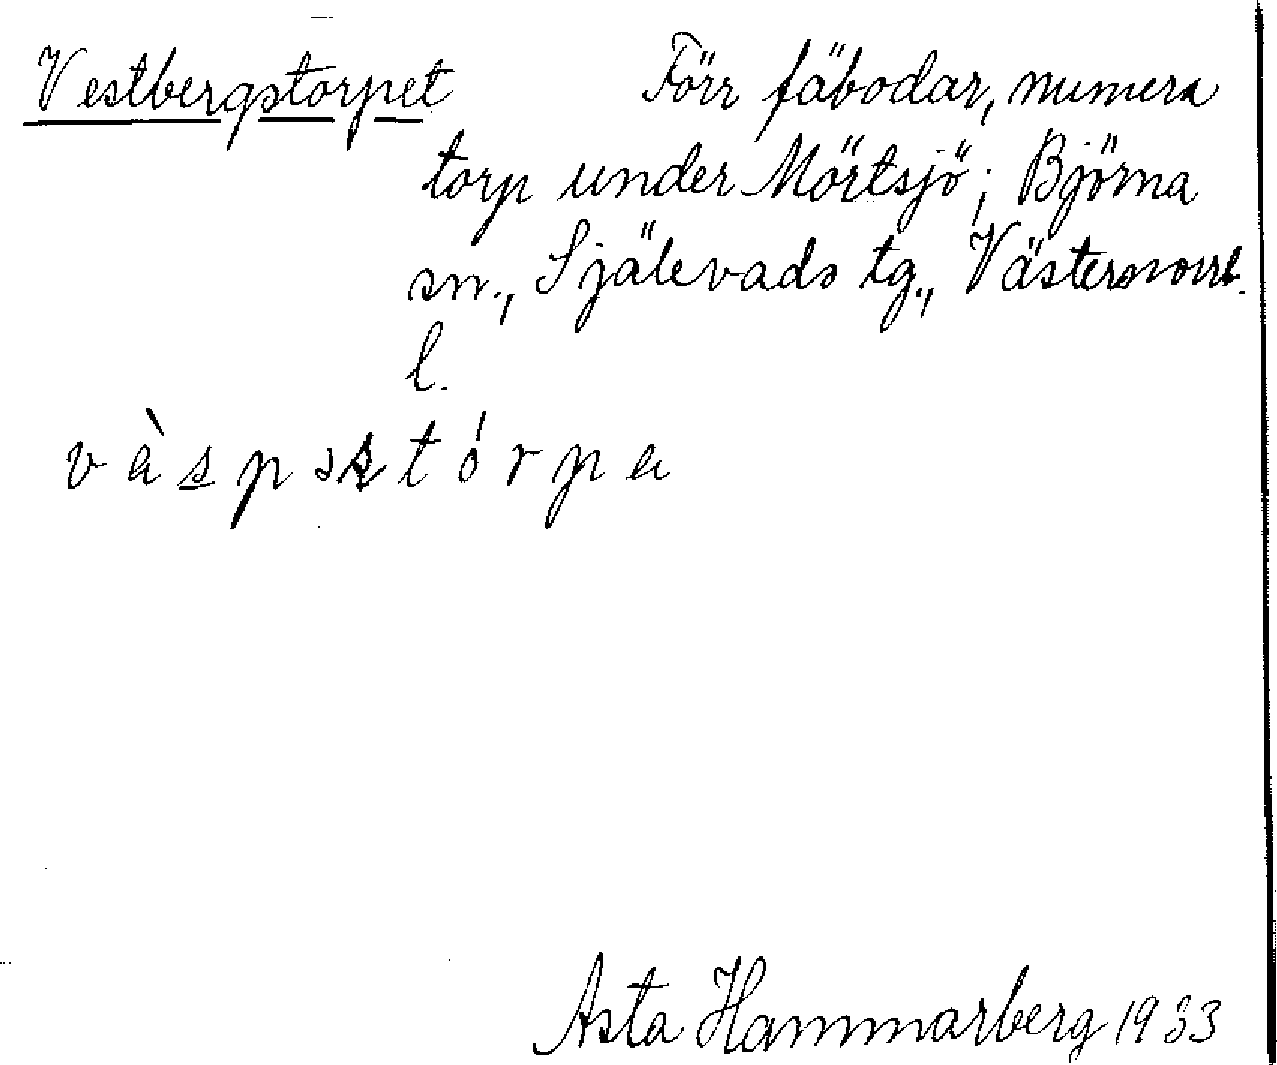 Vestbergstorpet Förr fäbodar, numera
torp under Mörtsjö; Björna
sn., Själevads tg., Västernorrl.
l.
Asta Hammarberg 1933